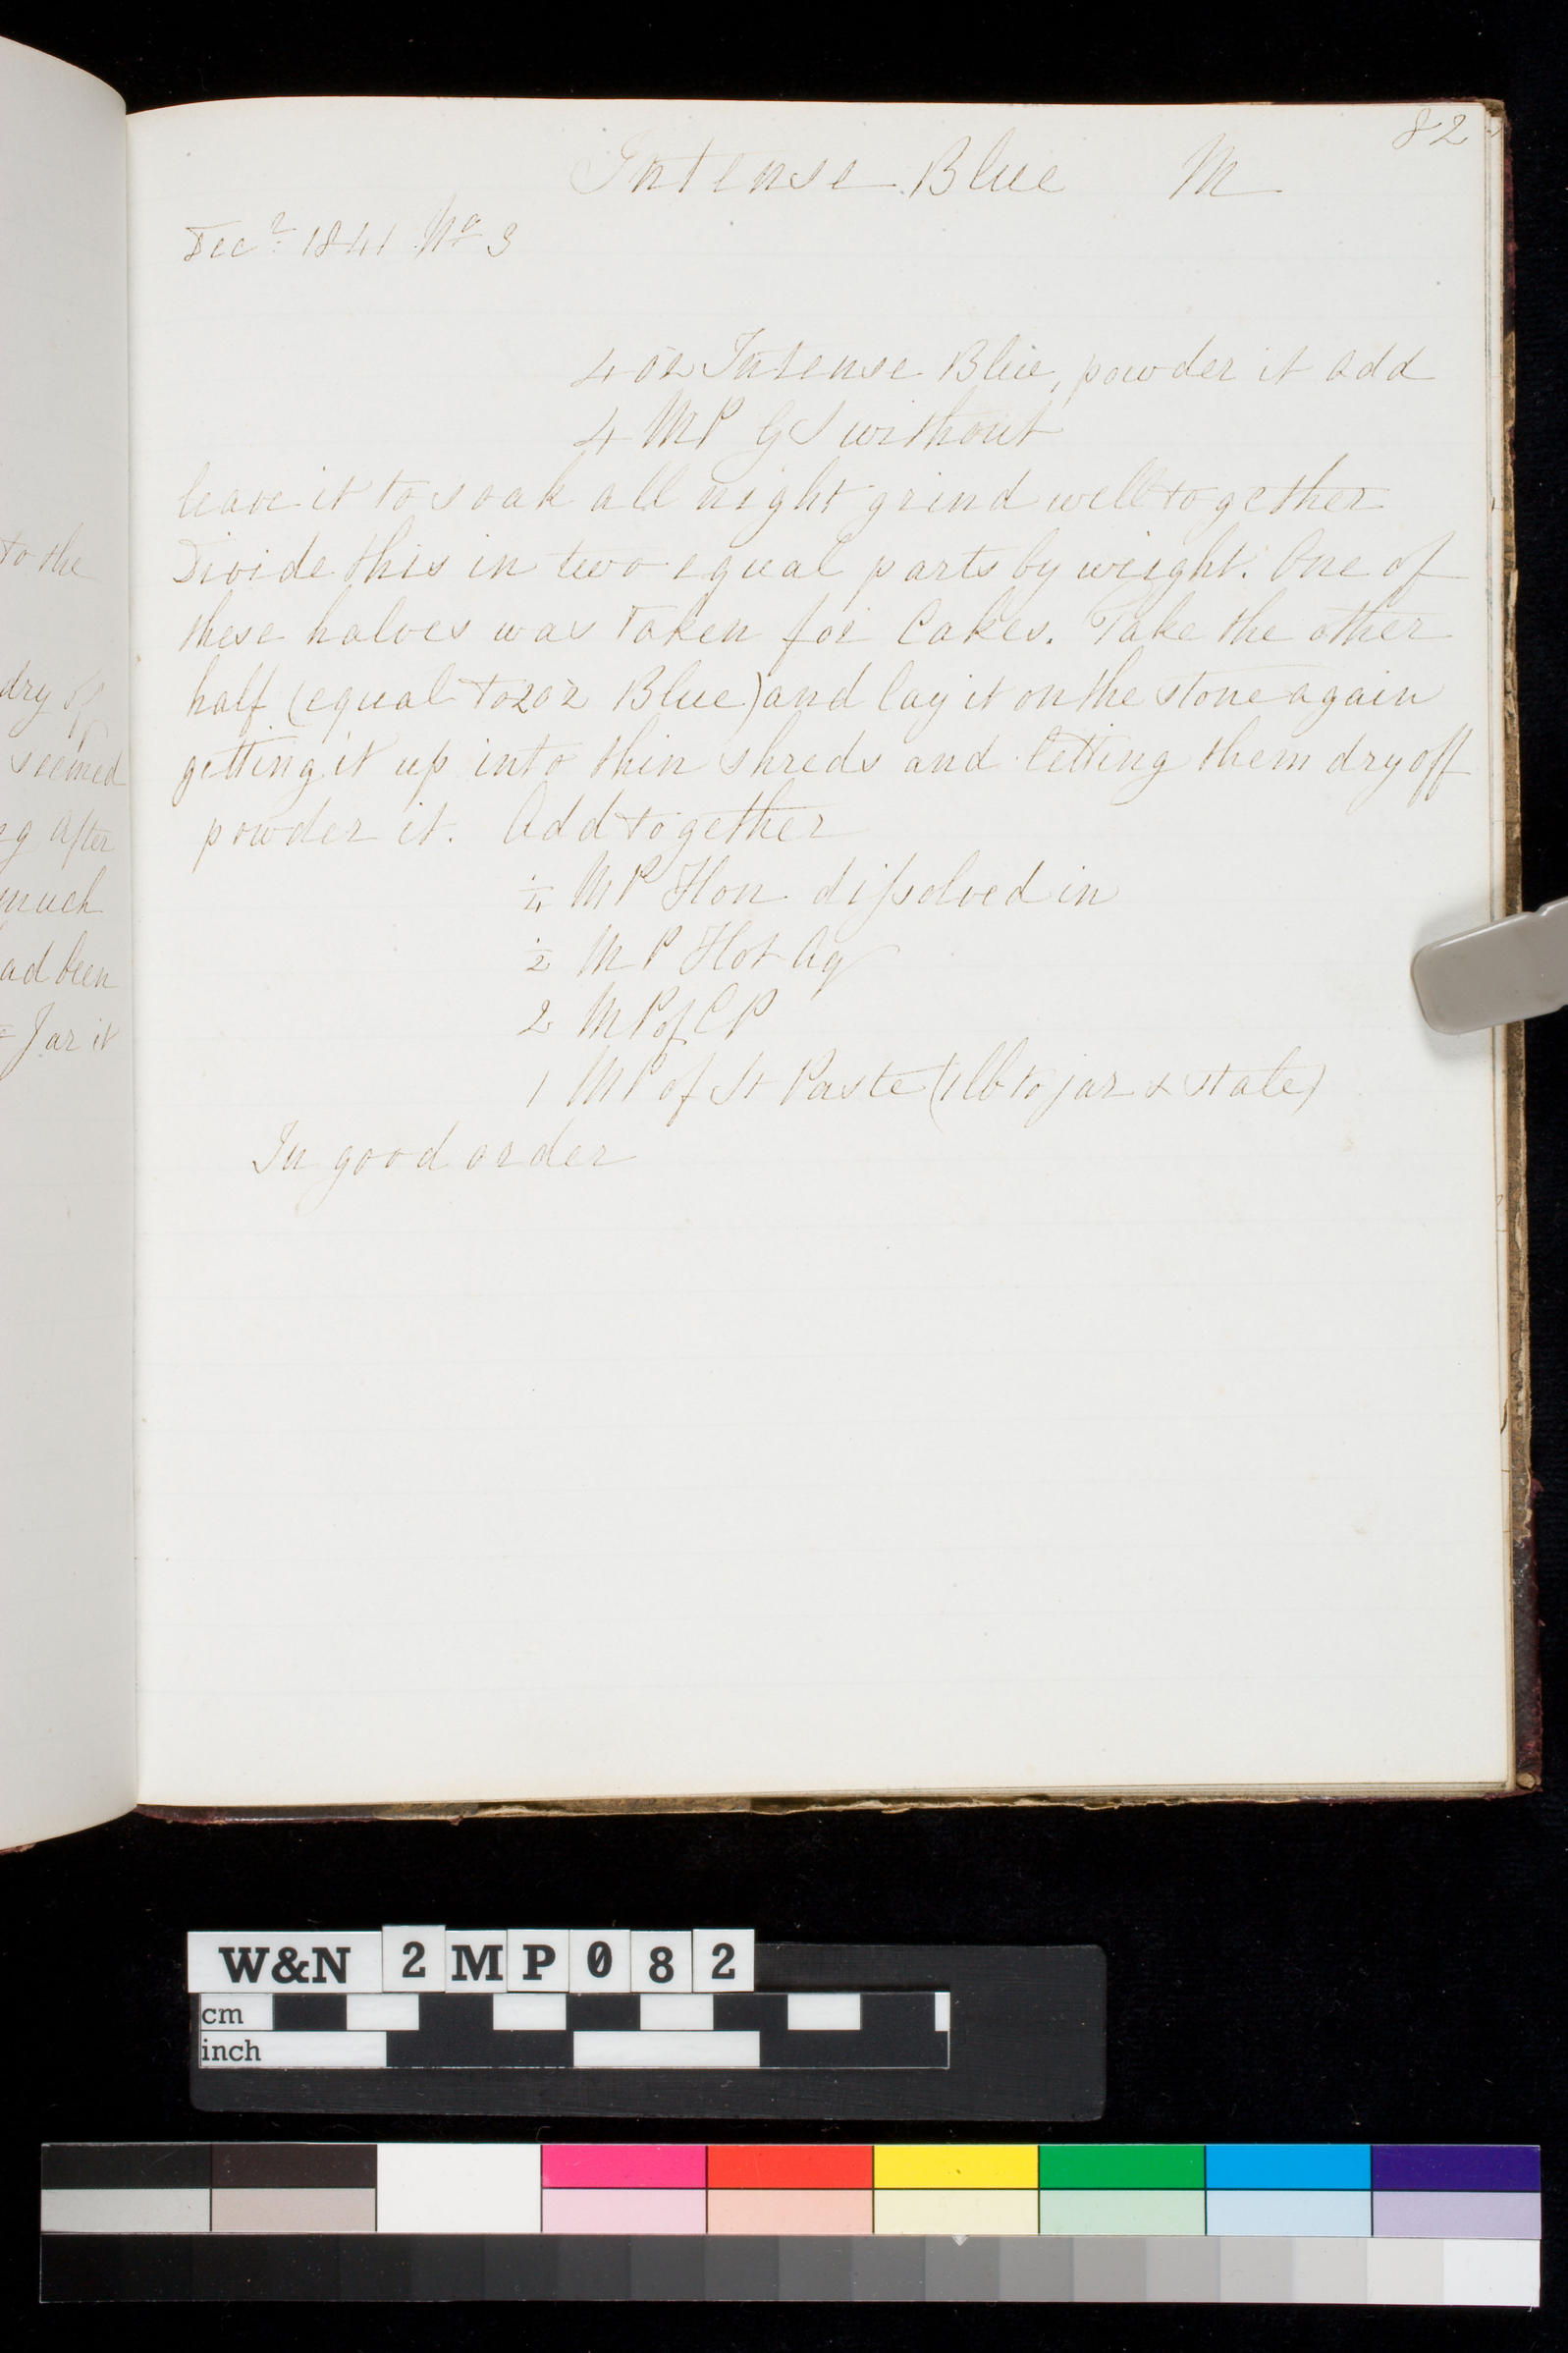 82
Intense Blue M
Decr 1841 No 3
4 oz Intense Blue, powder it add
4 MP GS without
leave it to soak all night grind well together
Divide this in two equal parts by weight. One of
these halves was taken for Cakes. Take the other
half (equal to 2 oz Blue) and lay it on the stone again
getting it up into thin shreds and letting them dry off
powder it. Add together
1/4 MP Hon diſsolved in
1/2 MP Hot Aq
2 MP of CP
1 MP of St Paste (1 lb to jar & stale)
In good order
to the
dry off
seemed
after
much
had been
Jar it
W&N 2 M P 0 8 2
cm
inch